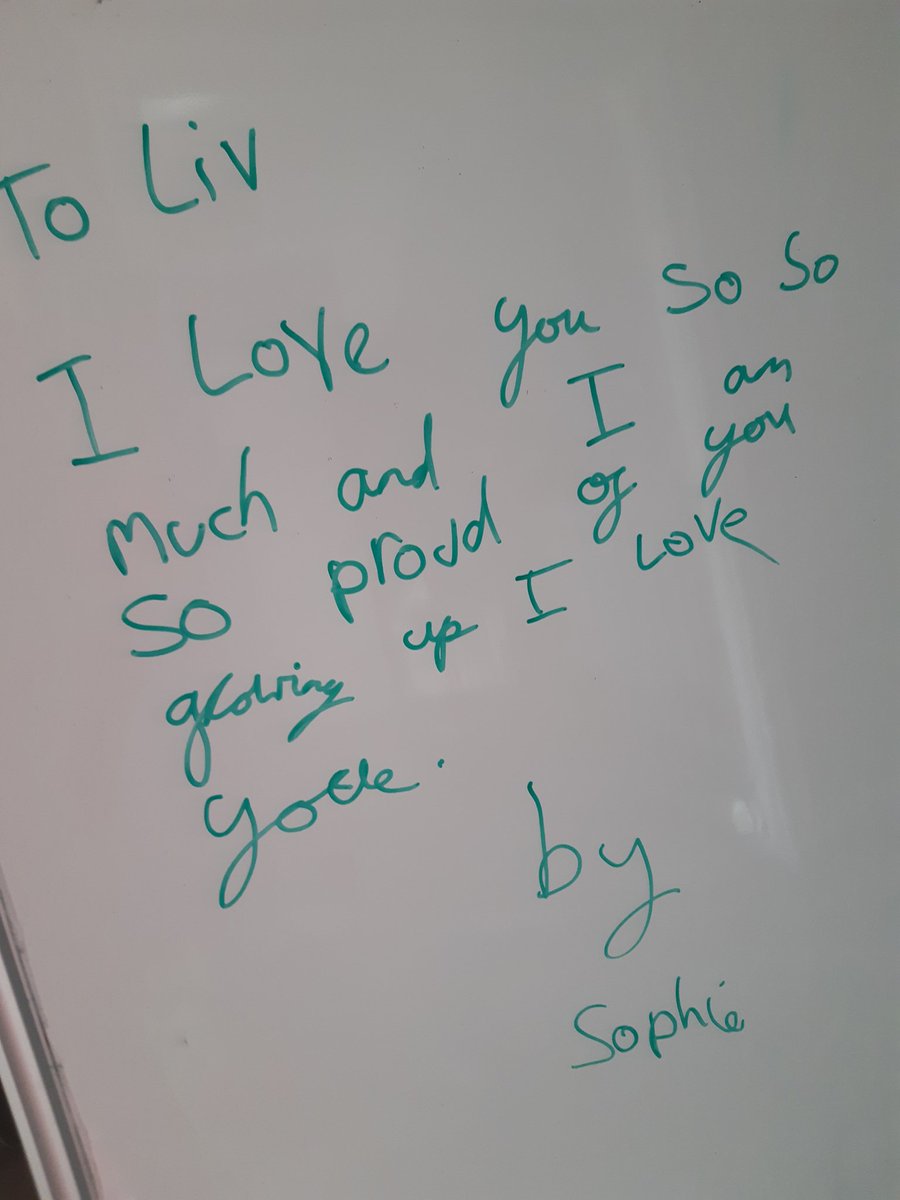 To Liv
I Love you so so
much and I am
so proud of you
growing up I Love
you.
by
Sophie